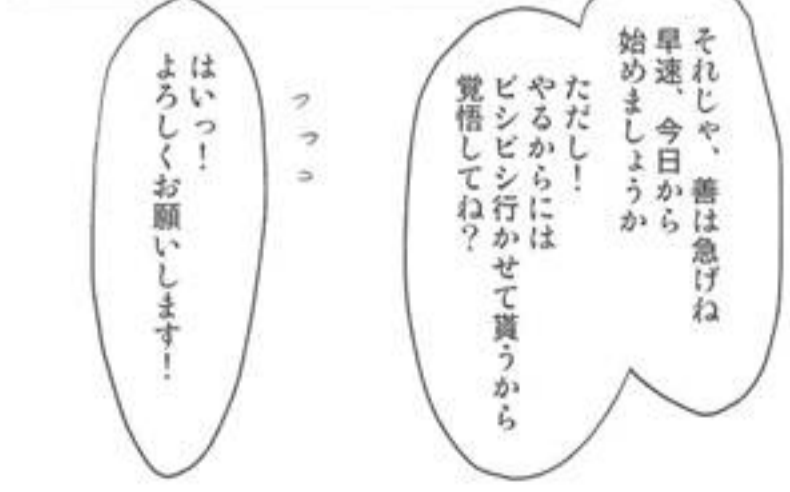 それじゃ、善は急げね
早速、今日から
始めましょうか
ただし！
やるからには
ビシビシ行かせて貰うから
覚悟してね？
フフっ
はいっ！
よろしくお願いします！